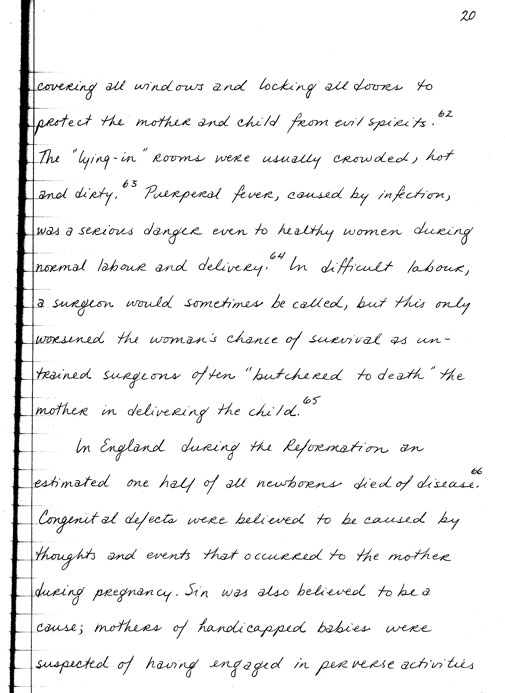 20
covering all windows and locking all doors to
protect the mother and child from evil spirits.62
The "lying-in" rooms were usually crowded, hot
and dirty.63 Puerperal fever, caused by infection,
was a serious danger even to healthy women during
normal labour and delivery.64 In difficult labour,
a surgeon would sometimes be called, but this only
worsened the woman's chance of survival as un-
trained surgeons often "butchered to death" the
mother in delivering the child.65
In England during the Reformation an
estimated one half of all newborns died of disease.66
Congenital defects were believed to be caused by
thoughts and events that occurred to the mother
during pregnancy. Sin was also believed to be a
cause; mothers of handicapped babies were
suspected of having engaged in perverse activities